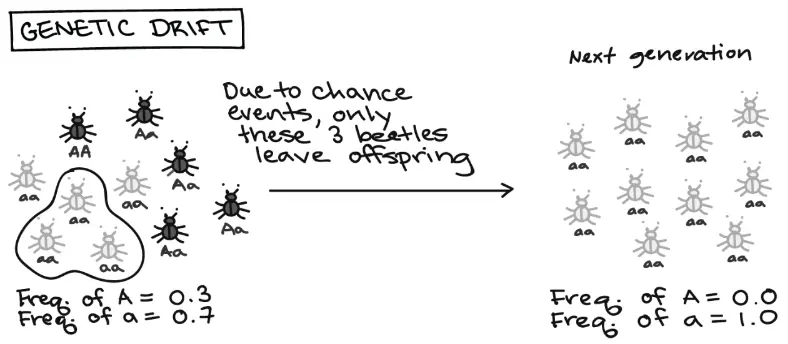 GENETIC DRIFT
AA
Aa
aa
aa
aa
Aa
Aa
aa
aa
Aa
Freq. of A = 0.3
Freq. of a = 0.7
Due to chance
events, only
these 3 beetles
leave offspring
Next generation
aa
aa
aa
aa
aa
aa
aa
aa
aa
aa
Freq. of A = 0.0
Freq. of a = 1.0